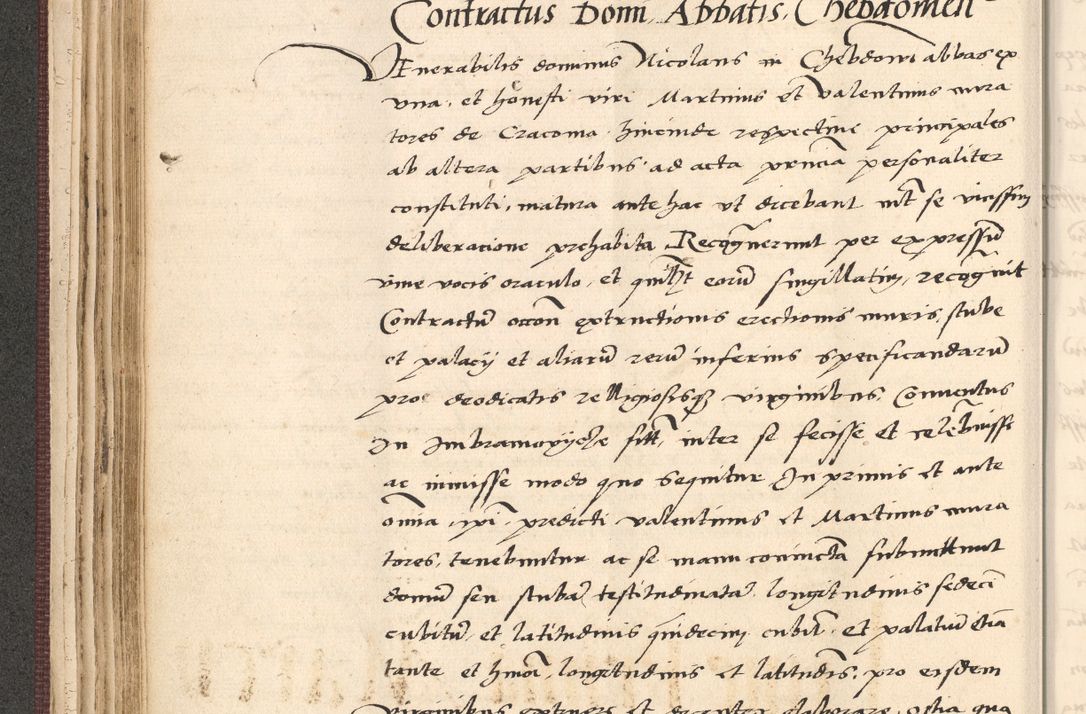 Contractus Domi Abbatis Chebdomen
Venerabilis dominus Nicolaus in Chebdow abbas ex
una, et honesti viri Martinus et Valentinus mura
tores de Cracovia hincinde respective principales
ab altera partibus, ad acta pruncia personaliter
constituti, matura ante hac ut dicebant int se vicissim
deliberacione prehabita Recognuerunt per expressum
vive vocis oraculo, et quilibet eorum singillatim, recognuit
Contractum occon extructionis erectionis muris, stube
et palacy et aliarum rerum inferius specificandarum
pro deodicatis religiosisque virginibus, Conventus
In Imbramovycze sitt, inter se fecisse et celebrasse
ac inivisse modo quo sequitur In primis et ante
omnia ipsi predicti Valentinus et Martinus mura
tores, tenebuntur ac se manu coniuncta submittunt
domum seu stubam testitudinatam longitudinis sedecim
cubitum et latitudinis quindecim cubit. et palatium etiam
tante et hmoi longitudinis et latitudis, pro eisdem
virginibus extruere et decenter elaborare, ostia qua